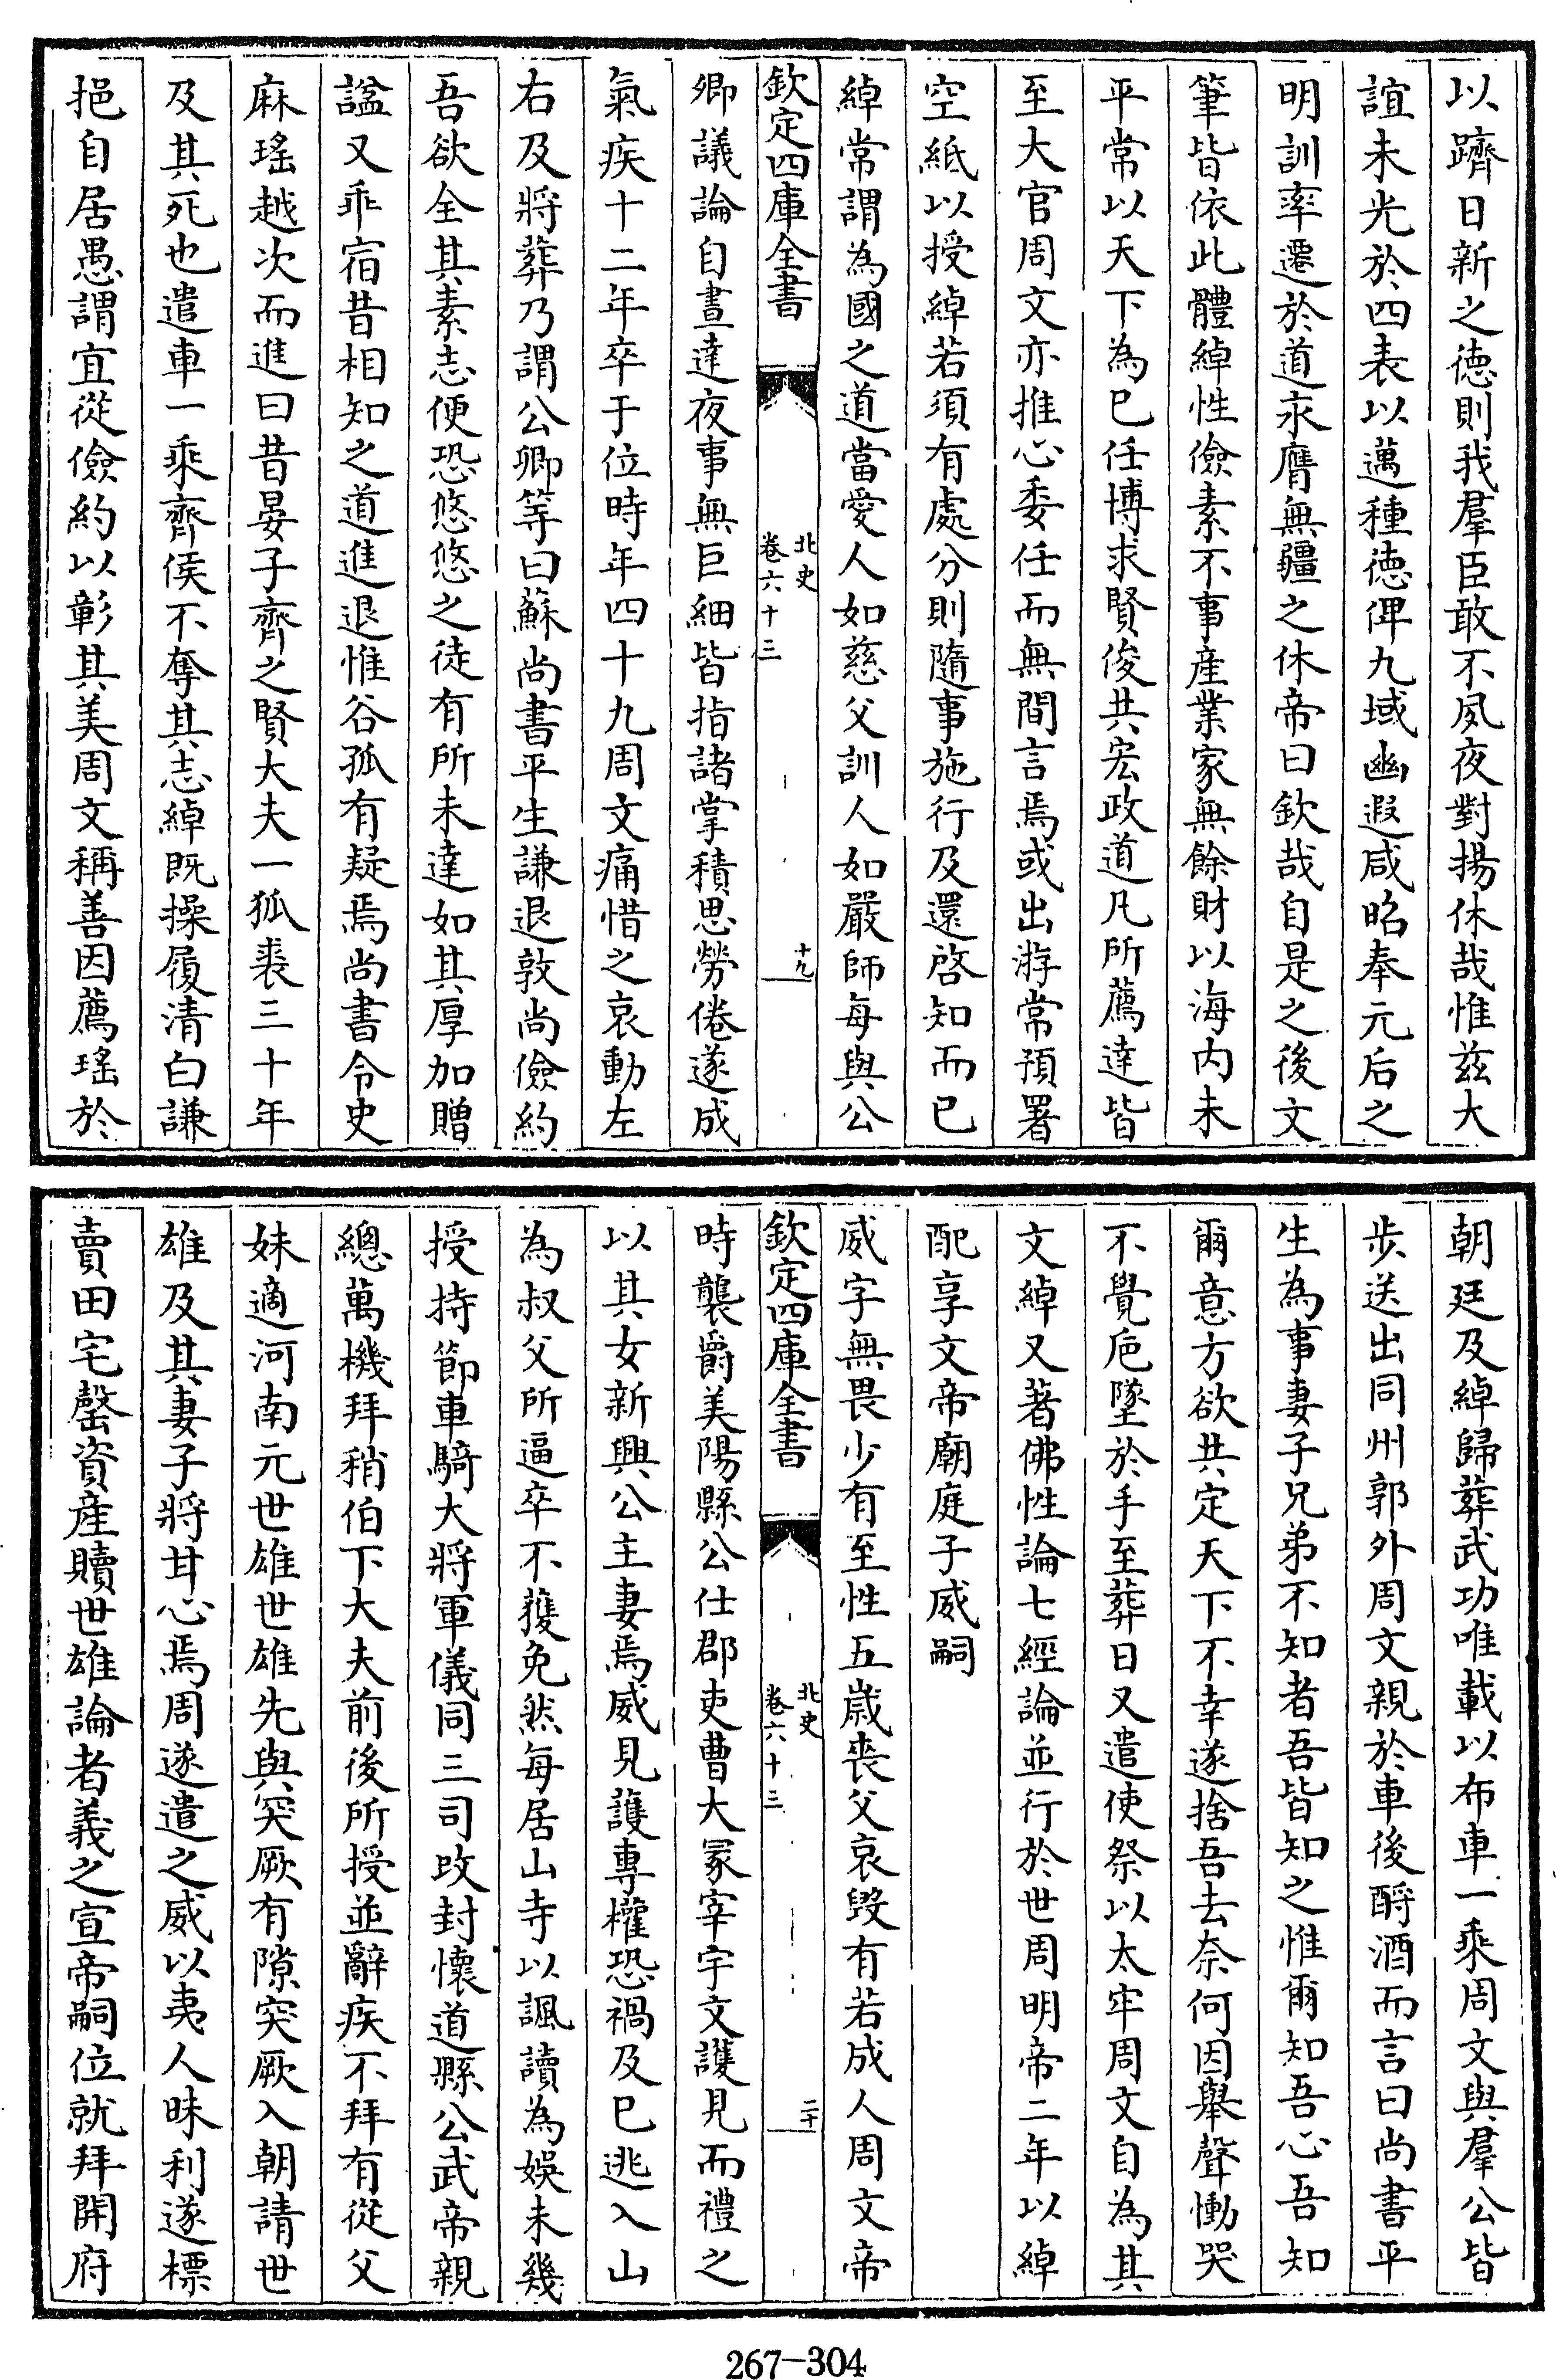 以躋日新之德則我羣臣敢不夙夜對揚休哉惟兹大
誼未光於四表以邁種德俾九域幽遐咸昭奉元后之
明訓率遷於道永膺無疆之休帝曰欽哉自是之後文
筆皆依此體綽性儉素不事産業家無餘財以海内未
平常以天下為已任博求賢俊共宏政道凡所薦達皆
至大官周文亦推心委任而無間言焉或出游常預署
空紙以授綽若須有處分則隨事施行及還啓知而已
綽常謂為國之道當愛人如慈父訓人如嚴師每與公
欽定四庫全書
北史
卷六十三
十九
卿議論自晝達夜事無巨細皆指諸掌積思勞倦遂成
氣疾十二年卒于位時年四十九周文痛惜之哀動左
右及將葬乃謂公卿等曰蘇尚書平生謙退敦尚儉約
吾欲全其素志便恐悠悠之徒有所未達如其厚加贈
諡又乖宿昔相知之道進退惟谷孤有疑焉尚書令史
麻瑤越次而進曰昔晏子齊之賢大夫一狐裘三十年
及其死也遣車一乘齊侯不奪其志綽既操履清白謙
挹自居愚謂宜從儉約以彰其美周文稱善因薦瑤於
朝廷及綽歸葬武功唯載以布車一乘周文與羣公皆
步送出同州郭外周文親於車後酹酒而言曰尚書平
生為事妻子兄弟不知者吾皆知之惟爾知吾心吾知
爾意方欲共定天下不幸遂捨吾去奈何因舉聲慟哭
不覺巵墜於手至葬日又遣使祭以太牢周文自為其
文綽又著佛性論七經論並行於世周明帝二年以綽
配享文帝廟庭子威嗣
威字無畏少有至性五嵗喪父哀毁有若成人周文帝
欽定四庫全書
北史
卷六十三
二十
時襲爵美陽縣公仕郡吏曹大冢宰宇文護見而禮之
以其女新興公主妻焉威見護專權恐禍及已逃入山
為叔父所逼卒不獲免然每居山寺以諷讀為娯未幾
授持節車騎大將軍儀同三司改封懷道縣公武帝親
總萬機拜稍伯下大夫前後所授並辭疾不拜有從父
妹適河南元世雄世雄先與突厥有隙突厥入朝請世
雄及其妻子將甘心焉周遂遣之威以夷人昧利遂標
賣田宅罄資産贖世雄論者義之宣帝嗣位就拜開府
267-304